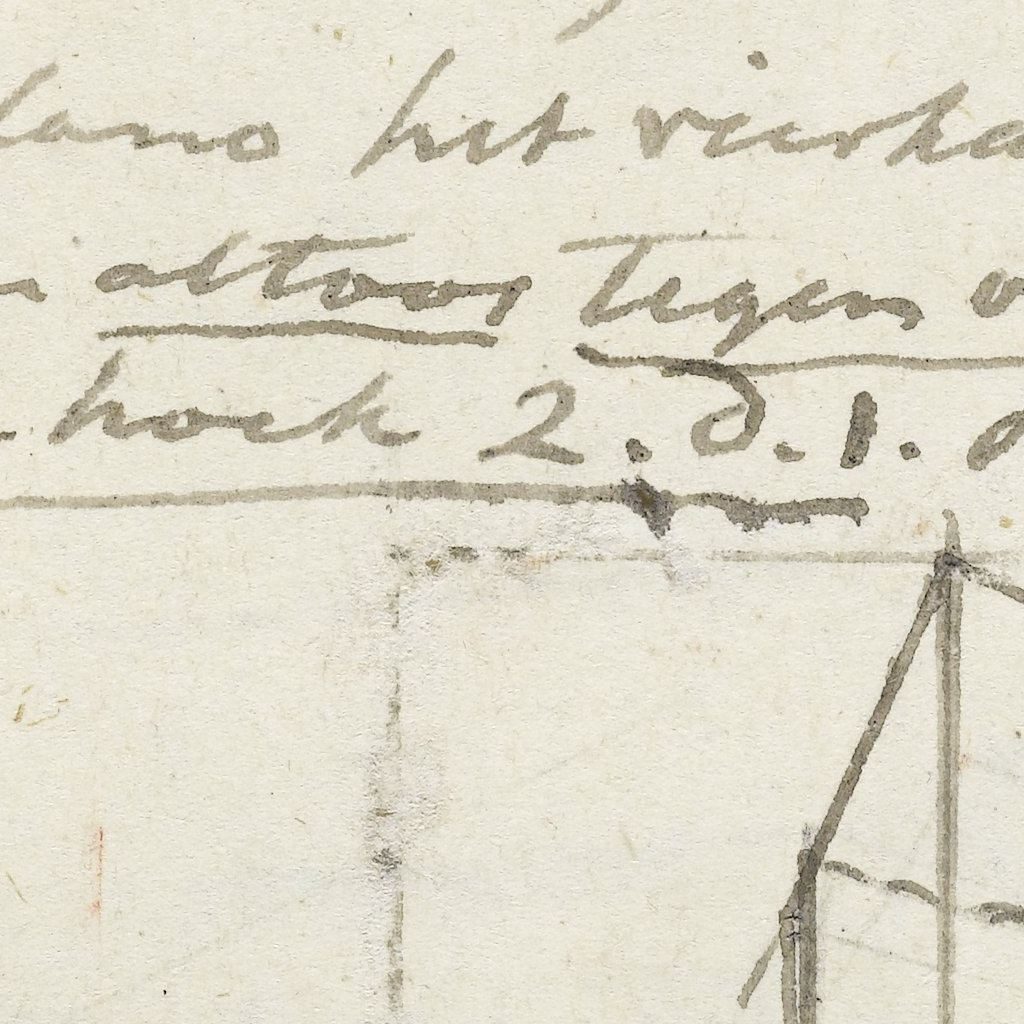 het vierka
altoos tegen o
hoek 2. d. 1.